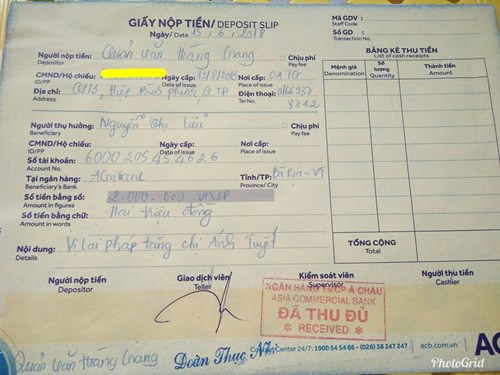 GIẤY NỘP TIỀN/ DEPOSIT SLIP
Ngày/ Date 15/6/2018
Mã GDV :
Staff Code
Số GD :
Transaction No.
Người nộp tiền: Quản Văn Hoàng
Depositor
Chịu phí
Pay fee
CMND/Hộ chiếu: Ngày cấp: Nơi cấp: CA TG
ID/PP Date of issue Place of issue
Địa chỉ: Hiệp Bình Phước Điện thoại:
Address Tel No.
8842
Người thụ hưởng: Nguyễn Chi
Beneficiary
Chịu phí
Pay fee
CMND/Hộ chiếu: Ngày cấp: Nơi cấp:
ID/PP Date of issue Place of issue
Số tài khoản: 6000 205 454 626
Account No.
Tại ngân hàng: AGribank Tỉnh/TP: Bà Rịa - VT
Beneficiary's Bank Province/ City
Số tiền bằng số: 2.000.000 VNĐ
Amount in figures
Số tiền bằng chữ: Hai triệu đồng
Amount in words
Nội dung: Vi Lai pháp tặng chị Ánh Tuyết
Details
BẢNG KÊ THU TIỀN
List of cash receipts
Mệnh giá Số lượng Thành tiền
Denomination Quantity Amount
TỔNG CỘNG
Total
Người nộp tiền Giao dịch viên Kiểm soát viên Người thu tiền
Depositor Teller Supervisor Cashier
NGÂN HÀNG TMCP Á CHÂU
ASIA COMMERCIAL BANK
ĐÃ THU ĐỦ
* RECEIVED *
Quản Văn Hoàng
Đoàn Thục Nhi
Center 24/7: 1900 54 54 86 - (028) 38 247 247
acb.com.vn
AC
PhotoGrid